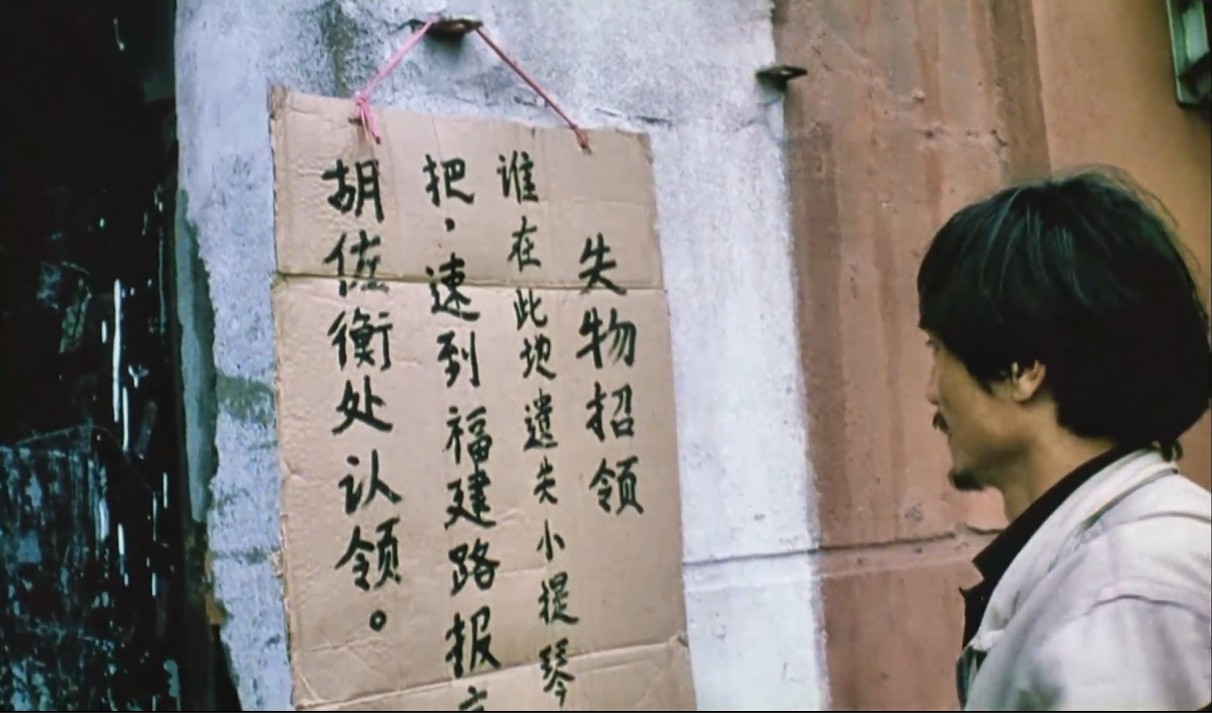 失物招领
谁在此地遗失小提琴
把，速到福建路报
胡佐衡处认领。